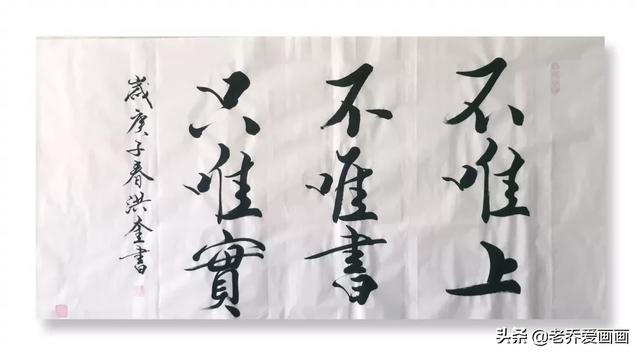 不唯上
不唯書
只唯實
歲庚子春洪奎書
头条 @老乔爱画画